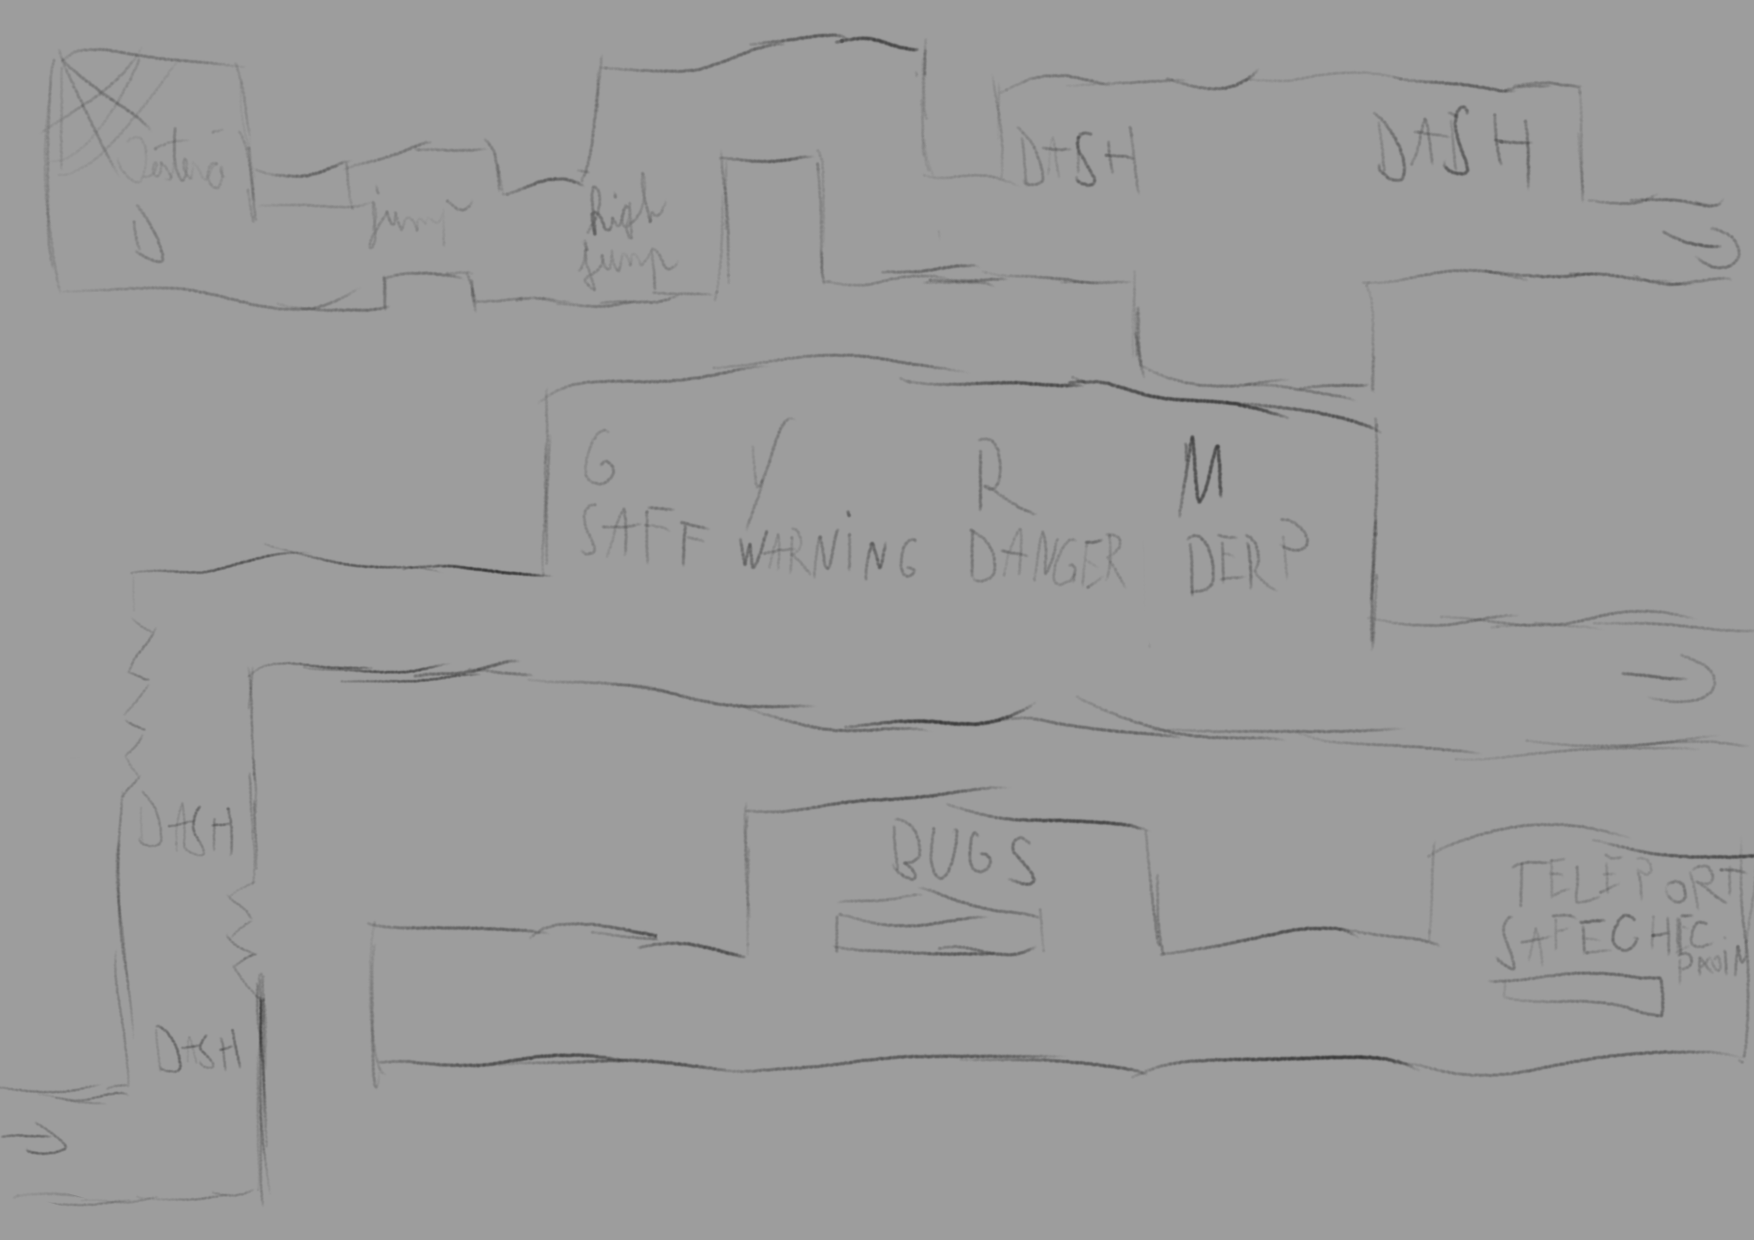 D
jump
high
jump
DASH
DASH
G Y R M
SAFF WARNiNG DANGER DERP
DASH
DASH
BUGS
TELEPORT
SAFECHEC